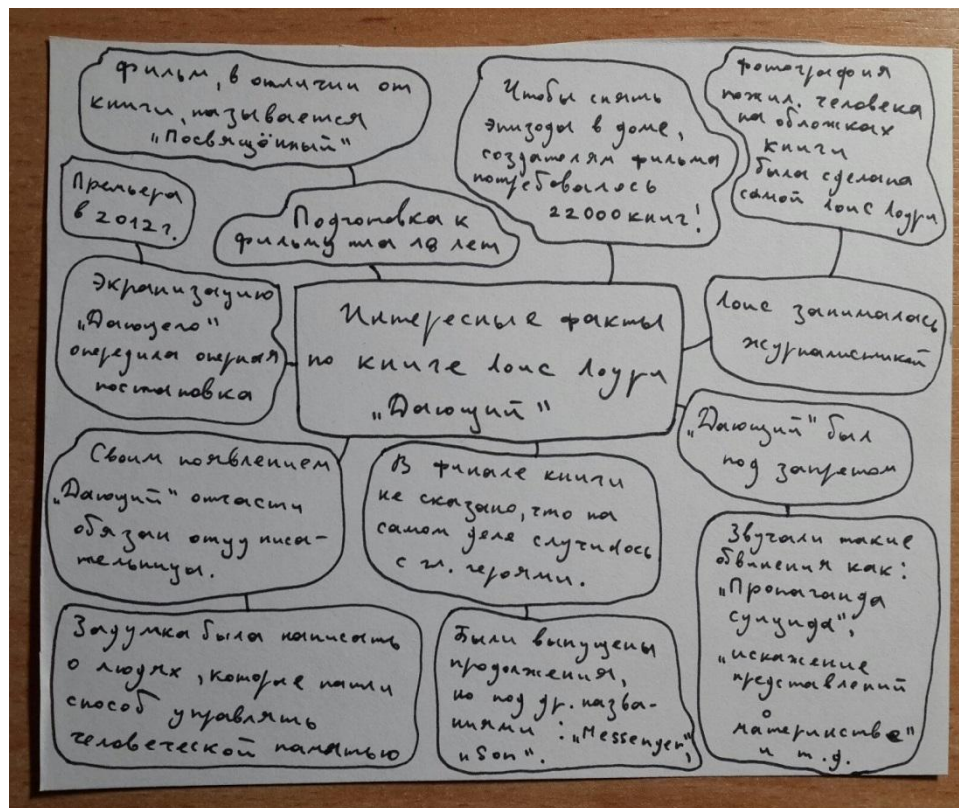 Фильм, в отличии от
книги, называется
„Посвящённый"
Чтобы снять
эпизоды в доме,
создателям фильма
потребовалось
22000 книг!
Фотография
пожил. человека
на обложках
книги
была сделана
самой Лоис Лоури
Премьера
в 2012 г.
Подготовка к
фильму шла 18 лет
Экранизацию
„Дающего"
опередила оперная
постановка
Интересные факты
по книге Лоис Лоури
„Дающий"
Лоис занималась
журналистикой
„Дающий" был
под запретом
Своим появлением
„Дающий" отчасти
обязан отцу писа-
тельницы.
В финале книги
не сказано, что на
самом деле случилось
с гл. героями.
Звучали такие
обвинения как:
„Пропаганда
суицида",
„искажение
представлений
о
материнстве"
и т.д.
Задумка была написать
о людях, которые нашли
способ управлять
человеческой памятью
Были выпущены
продолжения,
но под др. назва-
ниями: „Messenger",
„Son".